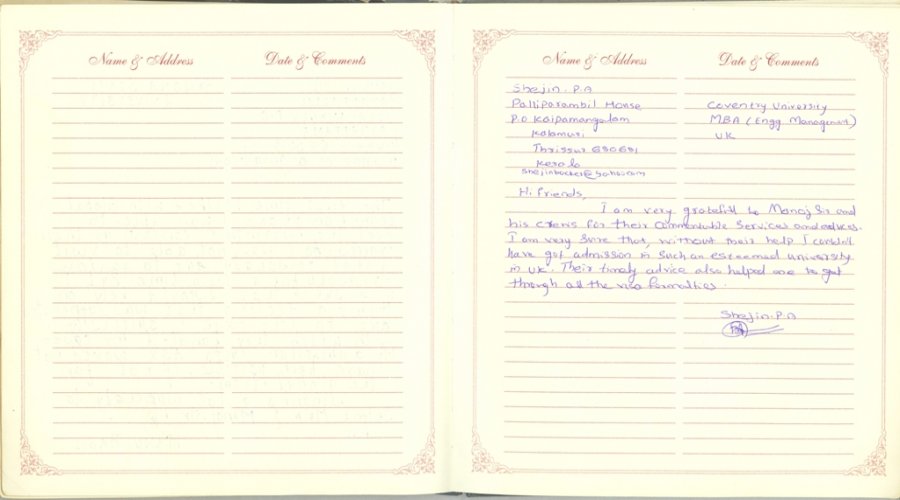 Name & Address
Date & Comments
Name & Address
Date & Comments
Shejin. P.A
Palliparambil House
P.O Kaipamangalam
Kalamuri
Thrissur 680681
Kerala
Coventry University
MBA (Engg Management)
UK
Hi friends,
I am very gratefull to Manoj Sir and
his crews for their Commentable Services and
I am very sure that, without their help I couldn't
have got admission in such an esteemed university
in UK. Their timely advice also helped me to get
through all the visa formalties.
Shejin.P.A